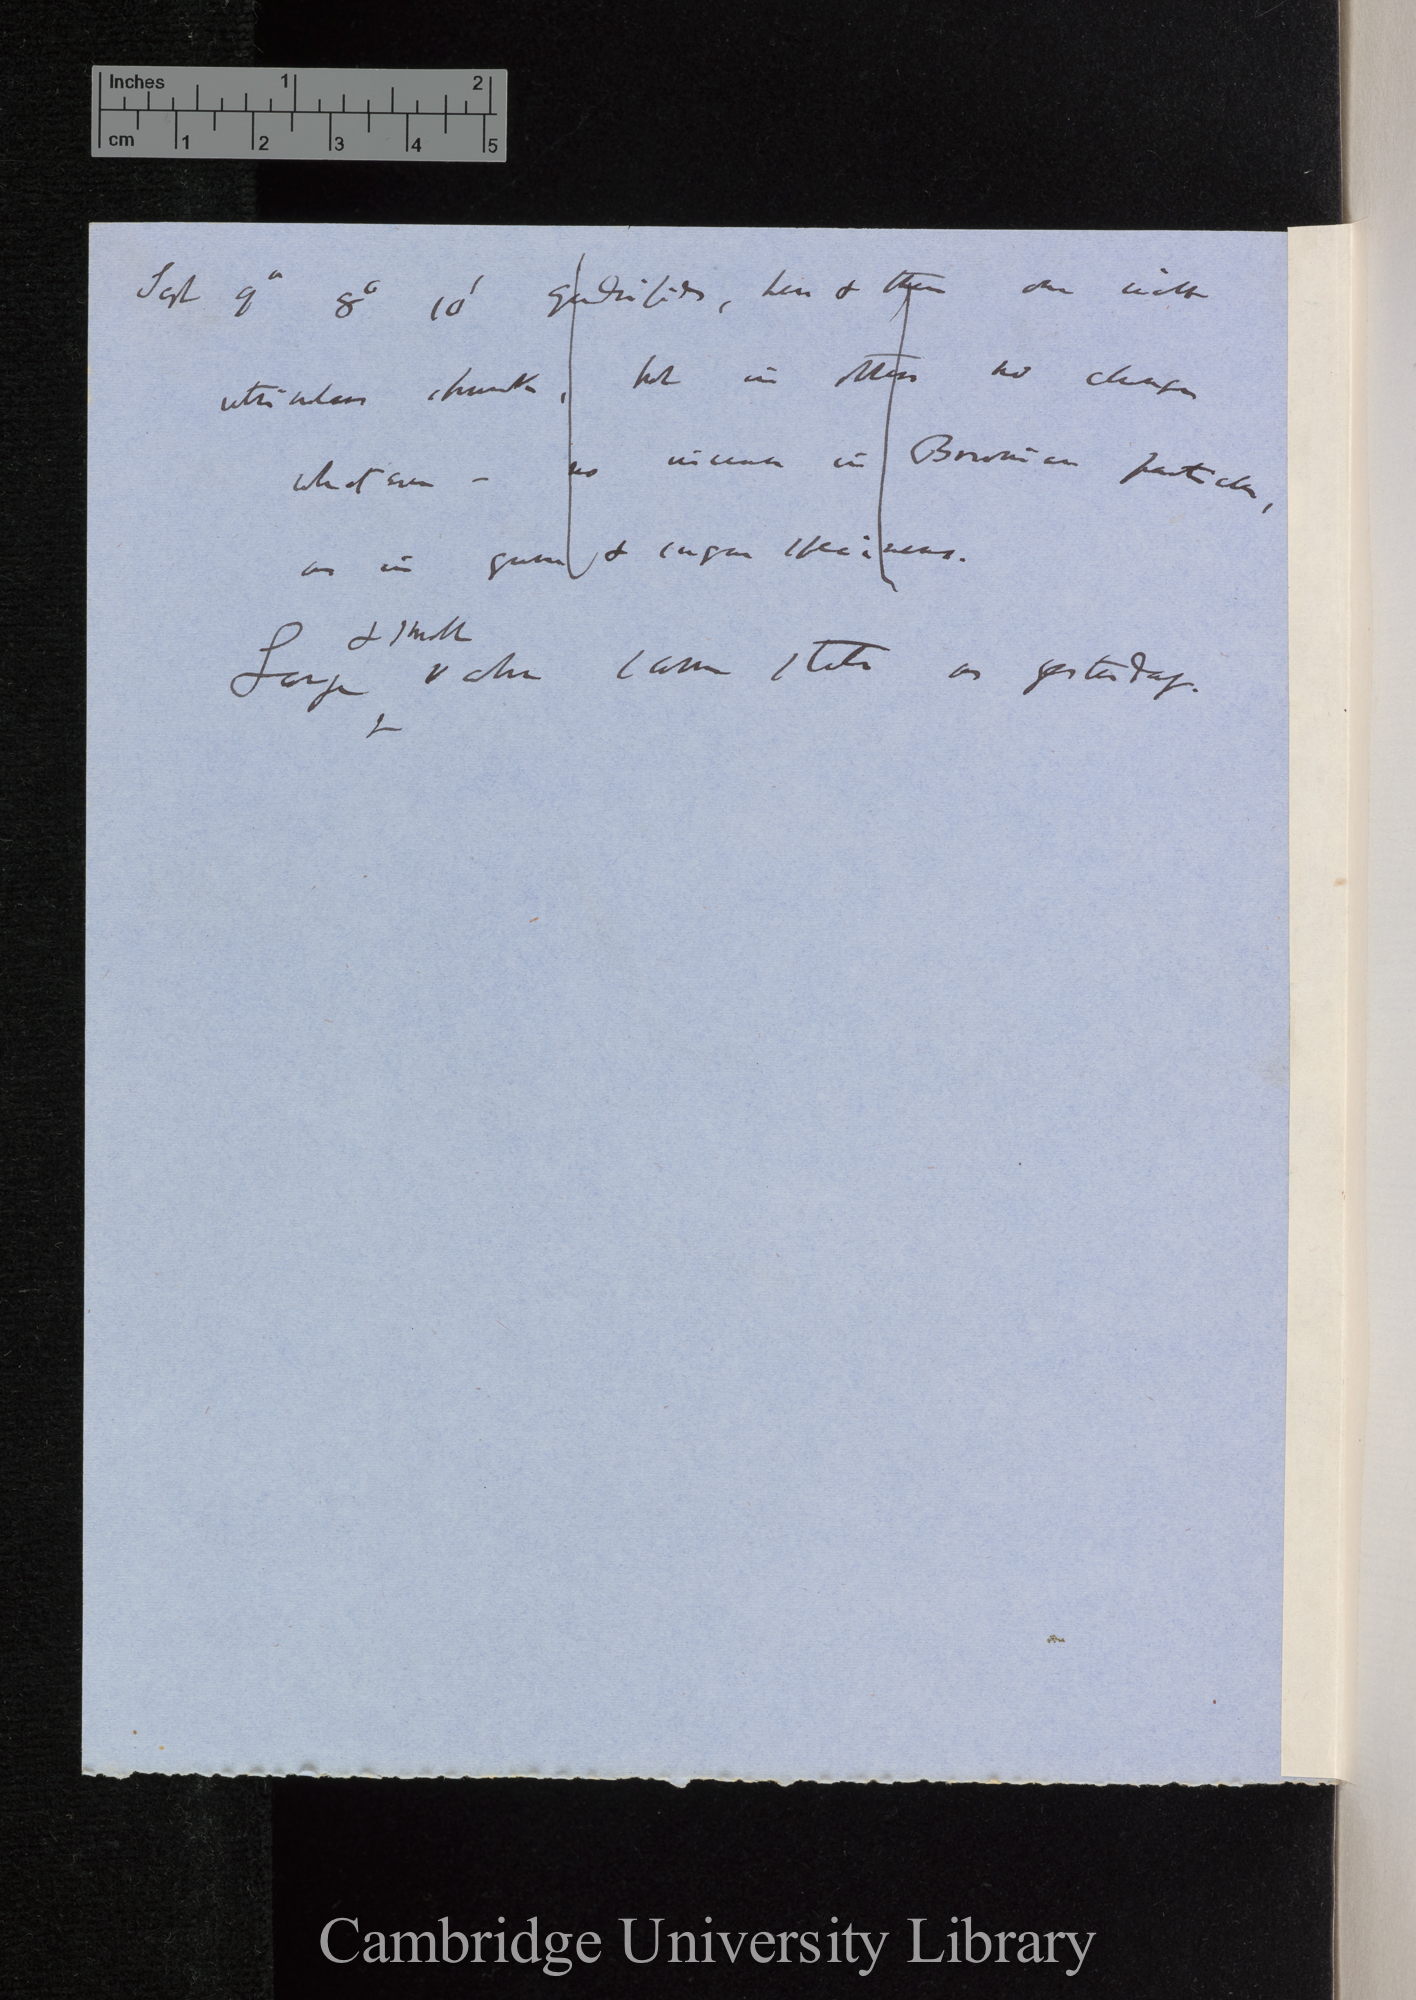 Inches 1 2
cm 1 2 3 4 5
Sept 9ᵃ 8ᵒ 10' quadrifids, here & there one with
utricular, but in others no change
whatever - no increase in Brownian particles,
as in gum & sugar specimens.
& small
Large valve same state as yesterday.
Cambridge University Library